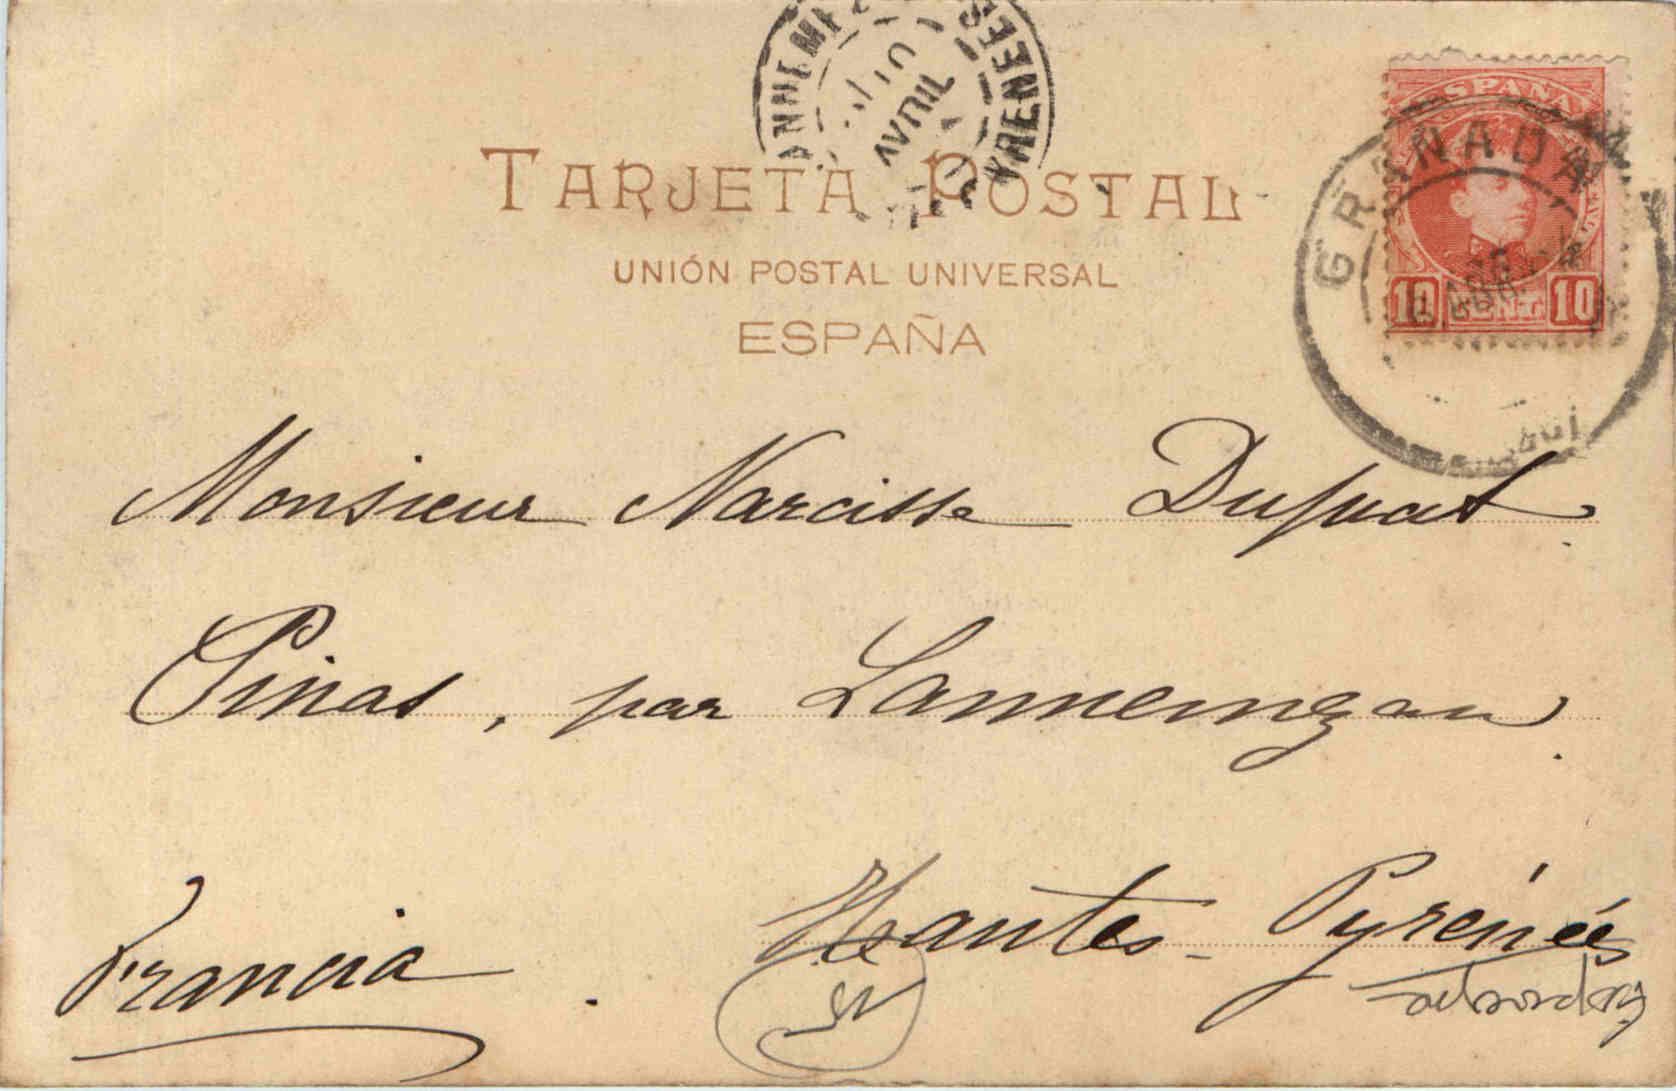 PYRENEES
10
AVRIL
ESPAÑA
10 CENT. 10
GRANADA
TARJETA POSTAL
UNIÓN POSTAL UNIVERSAL
ESPAÑA
Monsieur Narcisse Dupuat
Pinas, par Lannemezan
Hautes-Pyrénées
Francia.